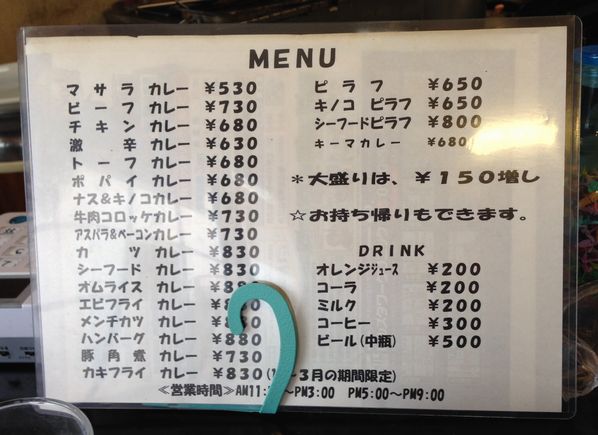 MENU
マサラ カレー ￥530
ビーフ カレー ￥730
チキン カレー ￥680
激 辛 カレー ￥630
トーフ カレー ￥680
ポパイ カレー ￥680
ナス＆キノコカレー ￥680
牛肉コロッケカレー ￥730
アスパラ＆ベーコンカレー ￥730
カ ツ カレー ￥830
シーフード カレー ￥830
オムライス カレー
エビフライ カレー
メンチカツ カレー
ハンバーグ カレー ￥880
豚角煮 カレー ￥730
カキフライ カレー ￥830 3月の期間限定)
≪営業時間≫AM11: ～PM3:00 PM5:00～PM9:00
ピラフ ￥650
キノコ ピラフ ￥650
シーフードピラフ ￥800
キーマカレー ￥680
＊大盛りは、￥150増し
☆お持ち帰りもできます。
DRINK
オレンジジュース ￥200
コーラ ￥200
ミルク ￥200
コーヒー ￥300
ビール(中瓶) ￥500